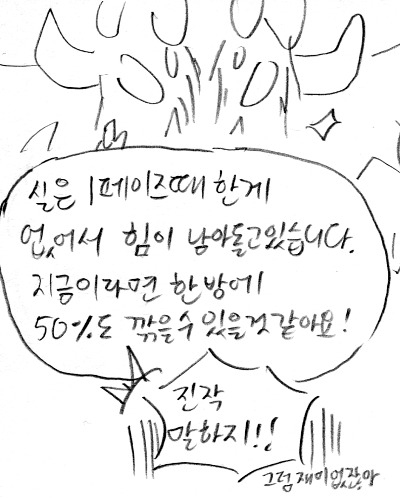 실은 1페이즈때 한게
없어서 힘이 남아돌고있습니다.
지금이라면 한방에
50%도 깎을수 있을것같아요!
진작
말하지!!
그럼 재미없잖아